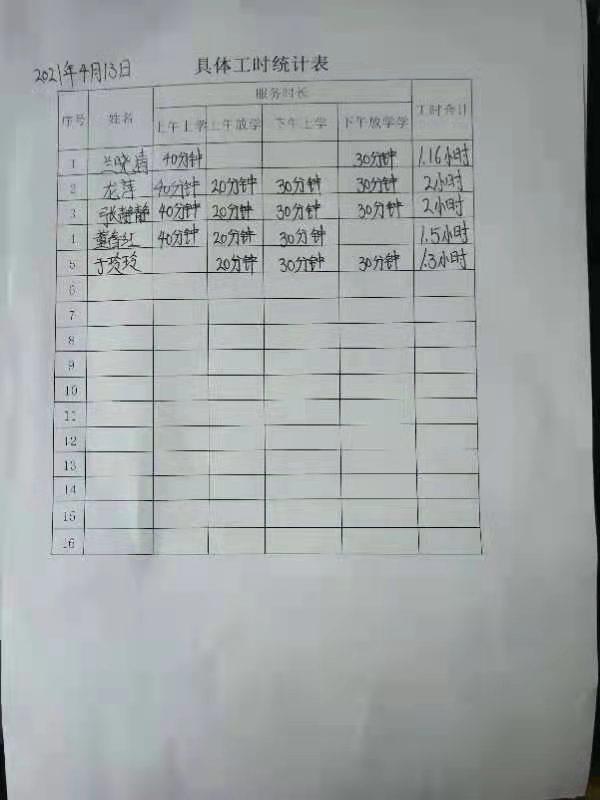 2021年4月13日 具体工时统计表
序号 姓名 服务时长 工时合计
上午上学 上午放学 下午上学 下午放学学
1 兰晓清 40分钟 30分钟 1.16小时
2 龙萍 40分钟 20分钟 30分钟 30分钟 2小时
3 张静静 40分钟 20分钟 30分钟 30分钟 2小时
4 40分钟 20分钟 30分钟 1.5小时
5 于玲玲 20分钟 30分钟 30分钟 1.3小时
6
7
8
9
10
11
12
13
14
15
16